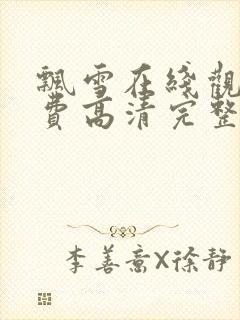 飄雪在綫觀
費高清完整
李善啻X徐靜